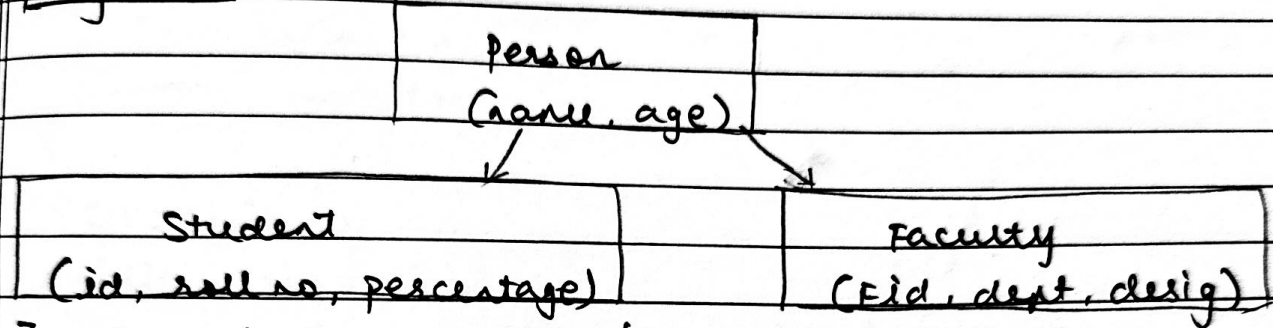 Person
(name, age)
Student
(id, roll no, percentage)
Faculty
(Fid, dept, desig)